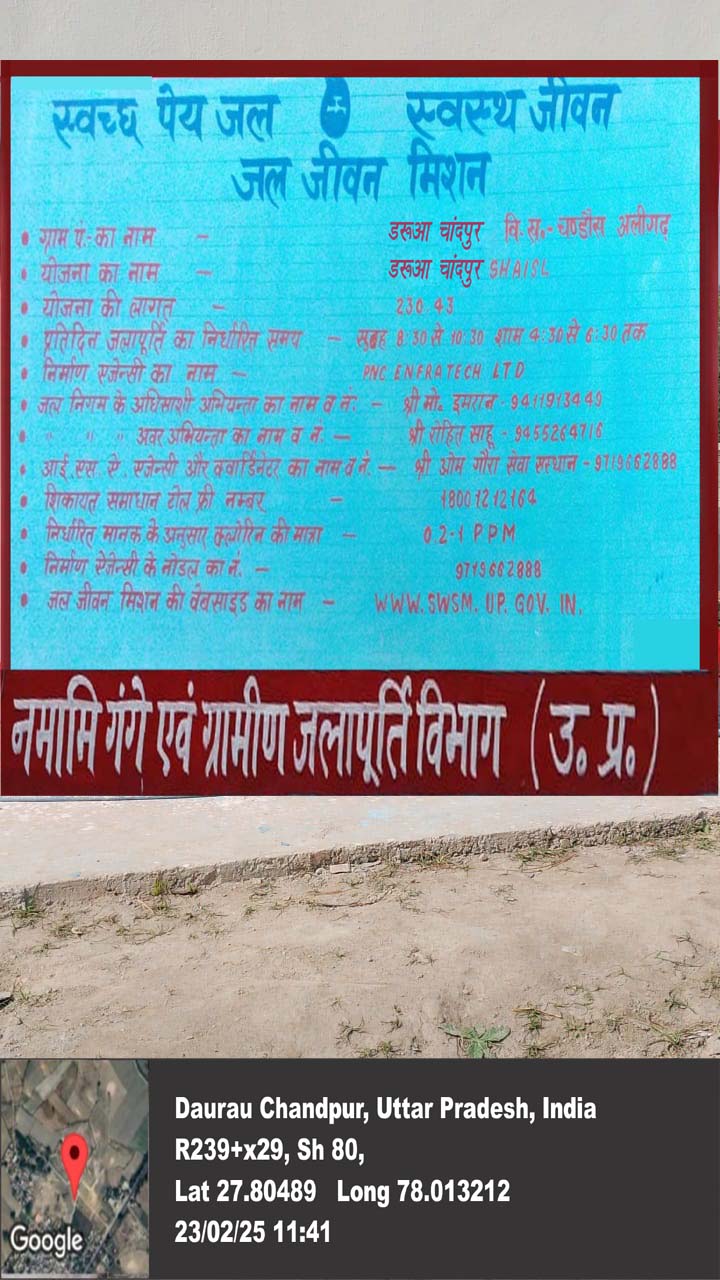 स्वच्छ पेय जल स्वस्थ जीवन
जल जीवन मिशन
• ग्राम पं.- का नाम – डरूआ चांदपुर वि.ख.- चण्डौस अलीगढ़
• योजना का नाम – डरूआ चांदपुर SHAISL
• योजना की लागत – 230.43
• प्रतिदिन जलापूर्ति का निर्धारित समय – सुबह 8:30 से 10:30 शाम 4:30 से 6:30 तक
• निर्माण एजेन्सी का नाम – PNC ENFRATECH LTD
• जल निगम के अधिसाशी अभियन्ता का नाम व नं. – श्री मो. इमरान - 9411913449
• " " " अवर अभियन्ता का नाम व नं. – श्री रोहित साहू - 9455264716
• आई.एस.ए. एजेन्सी और क्वार्डिनेटर का नाम व नं. – श्री ओम गौरा सेवा संस्थान - 9719662888
• शिकायत समाधान टोल फ्री नम्बर – 18001212164
• निर्धारित मानक के अनुसार क्लोरिन की मात्रा – 0.2-1 PPM
• निर्माण ऐजेन्सी के नोडल का नं. – 9719662888
• जल जीवन मिशन की वेबसाइड का नाम – WWW.SWSM.UP.GOV.IN.
नमामि गंगे एवं ग्रामीण जलापूर्ति विभाग (उ. प्र.)
Daurau Chandpur, Uttar Pradesh, India
R239+x29, Sh 80,
Lat 27.80489 Long 78.013212
23/02/25 11:41
Google